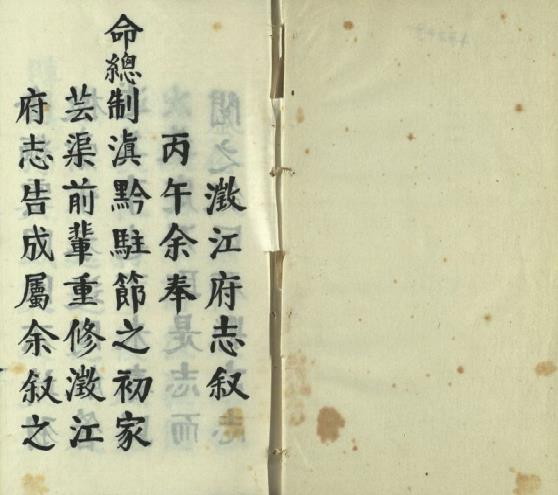 澂江府志叙
丙午余奉
命總制滇黔駐節之初家
芸渠前輩重修澂江
府志告成屬余叙之